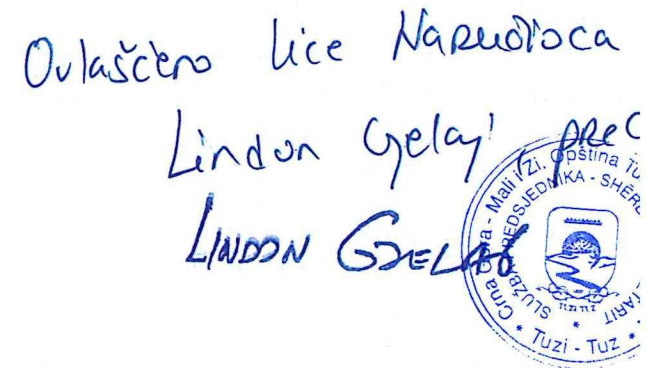 Ovlašćeno lice Naručioca
Lindon Gjelaj, pred
LINDON GJELAJ
Crna Gora - Mali i Zi. Opština Tu
SLUŽBA PREDSJEDNIKA - SHËR
ETARIT
Tuzi - Tuz